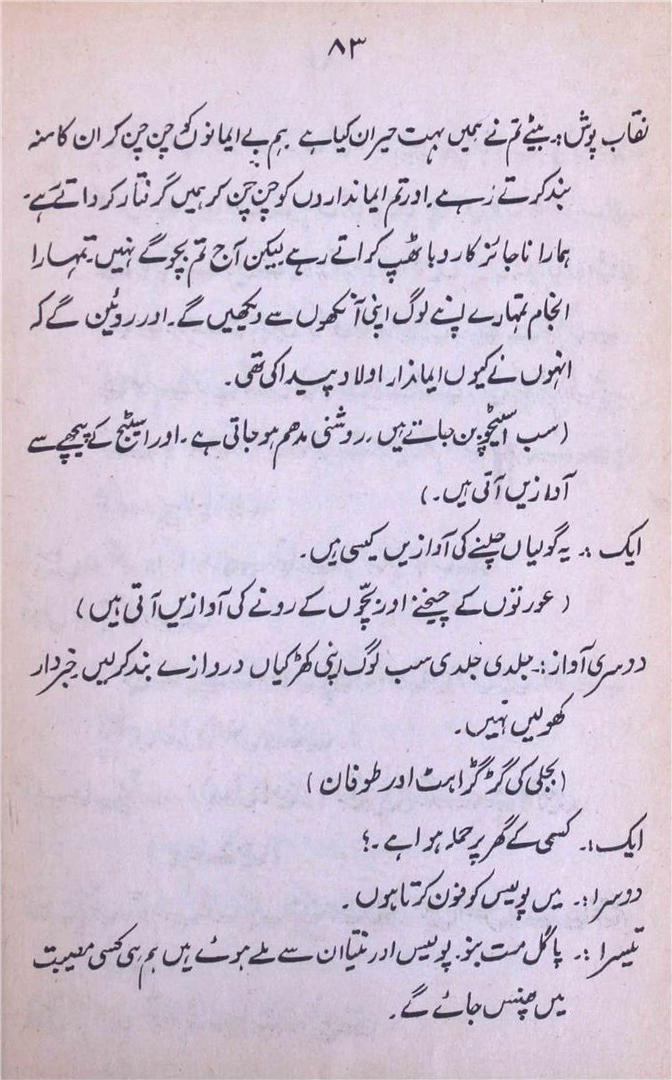 ۸۳
نقاب پوش:۔ بیٹے تم نے ہمیں بہت حیران کیا ہے ہم بے ایمانوں کو چن چن کر ان کا منہ
بند کرتے رہے۔ اور تم ایمانداروں کو چن چن کر ہمیں گرفتار کرداتے رہے۔
ہمارا ناجائز کاروبا ٹھپ کراتے رہے لیکن آج تم بچو گے نہیں۔ تمہارا
انجام تمہارے اپنے لوگ اپنی آنکھوں سے دیکھیں گے۔ اور روئین گے کہ
انہوں نے کیوں ایماندار اولاد پیدا کی تھی۔
(سب اسٹیچو بن جاتے ہیں۔ روشنی مدھم ہو جاتی ہے۔ اور اسٹیج کے پیچھے سے
آوازیں آتی ہیں۔)
ایک :۔ یہ گولیاں چلنے کی آوازیں کیسی ہیں۔
(عورتوں کے چیخنے اور بچّوں کے رونے کی آوازیں آتی ہیں)
دوسری آواز:۔ جلدی جلدی سب لوگ اپنی کھڑکیاں دروازے بند کر لیں۔ خبردار
کھولیں نہیں۔
(بجلی کی گڑگڑاہٹ اور طوفان)
ایک :۔ کسی کے گھر پر حملہ ہوا ہے۔؟
دوسرا :۔ میں پولیس کو فون کرتا ہوں۔
تیسرا :۔ پاگل مت بنو۔ پولیس اور نیتا ان سے ملے ہوئے ہیں ہم ہی کسی مصیبت
میں پھنس جائے گے۔